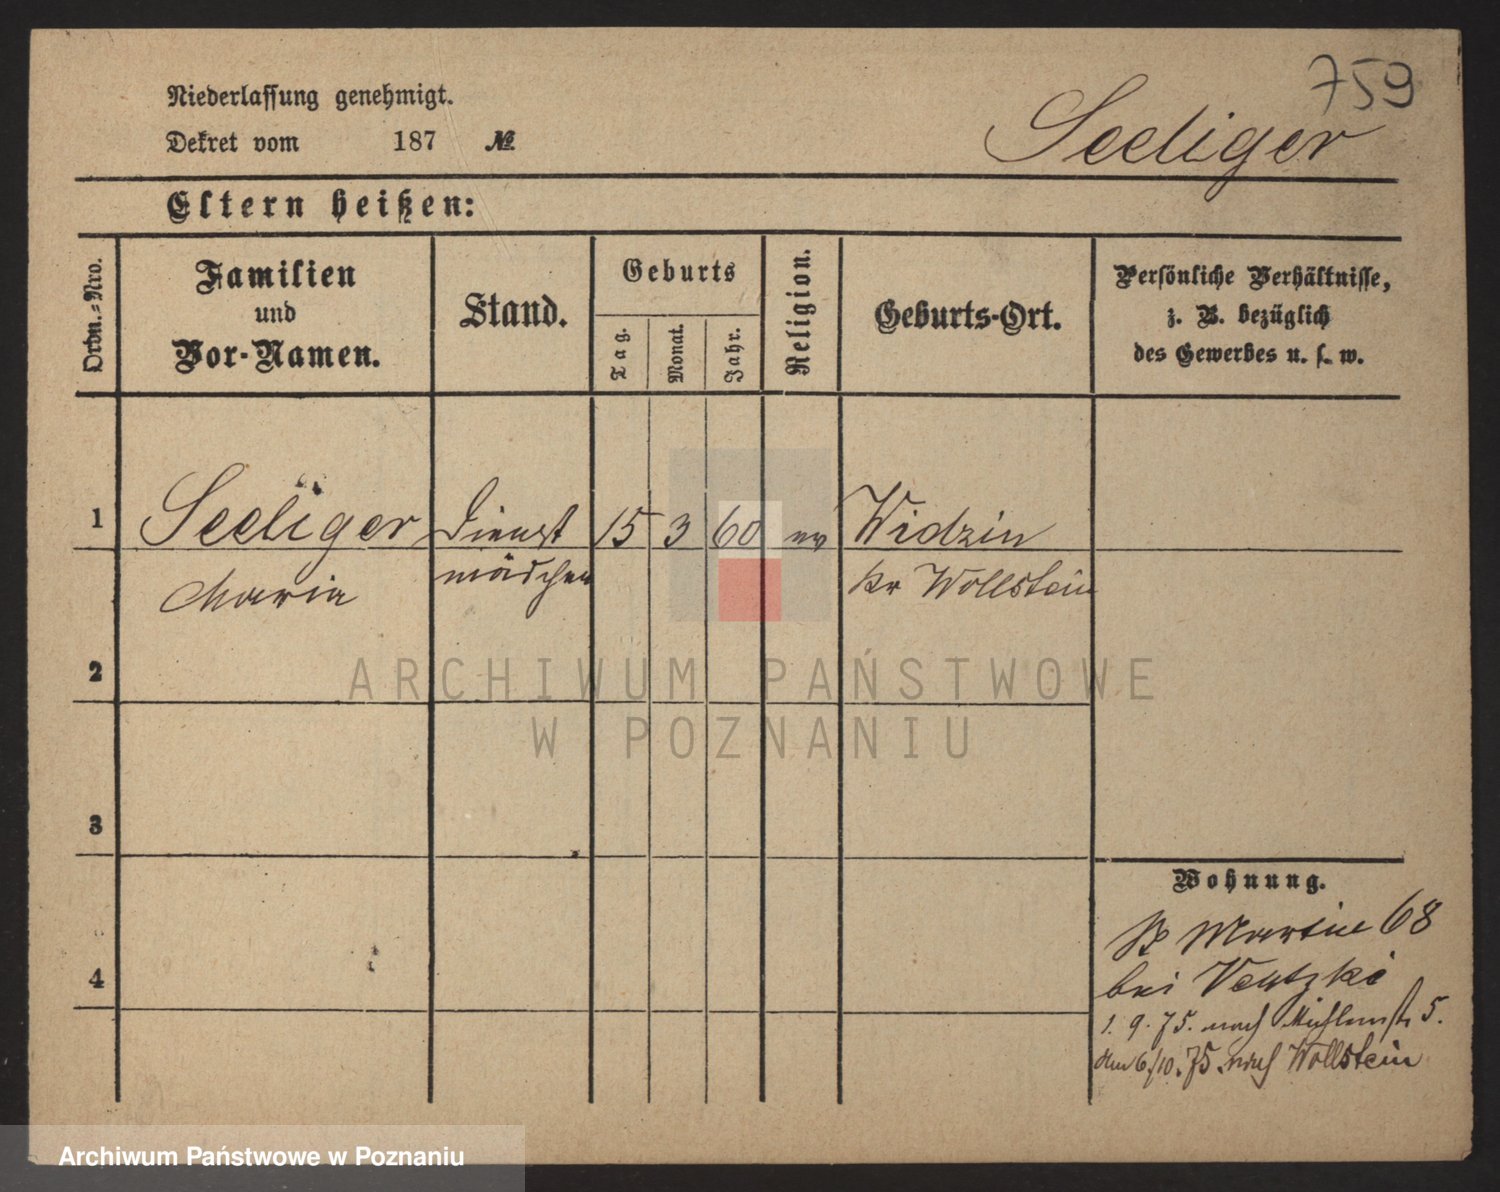 759
Niederlassung genehmigt.
Dekret vom 187 №
Seeliger
Eltern heißen:
Ordn.-Nro.
Familien
und
Vor-Namen.
Stand.
Geburts
Tag.
Monat.
Jahr.
Religion.
Geburts-Ort.
Persönliche Verhältnisse,
z. B. bezüglich
des Gewerbes u. s. w.
1 Seeliger Dienst 15 3 60 ev Widzin
Maria mädchen Kr Wollstein
2
3
4
Wohnung.
St Martin 68
bei Ventzki
1. 9. 75. nach Mühlenstr 5.
Am 6/10. 75. nach Wollstein
ARCHIWUM PAŃSTWOWE
W POZNANIU
Archiwum Państwowe w Poznaniu